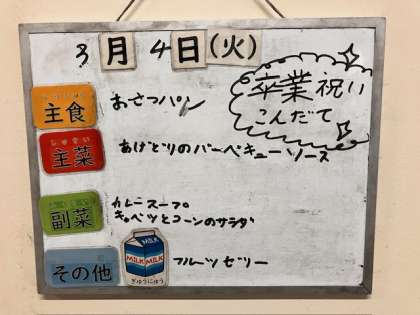 3月4日(火)
卒業祝い
こんだて
主食
おさつパン
しゅさい
主菜
あげどりのバーベキューソース
副菜
カムニスープ
キャベツとコーンのサラダ
その他
MILK
MILK MILK
ぎゅうにゅう
フルーツゼリー